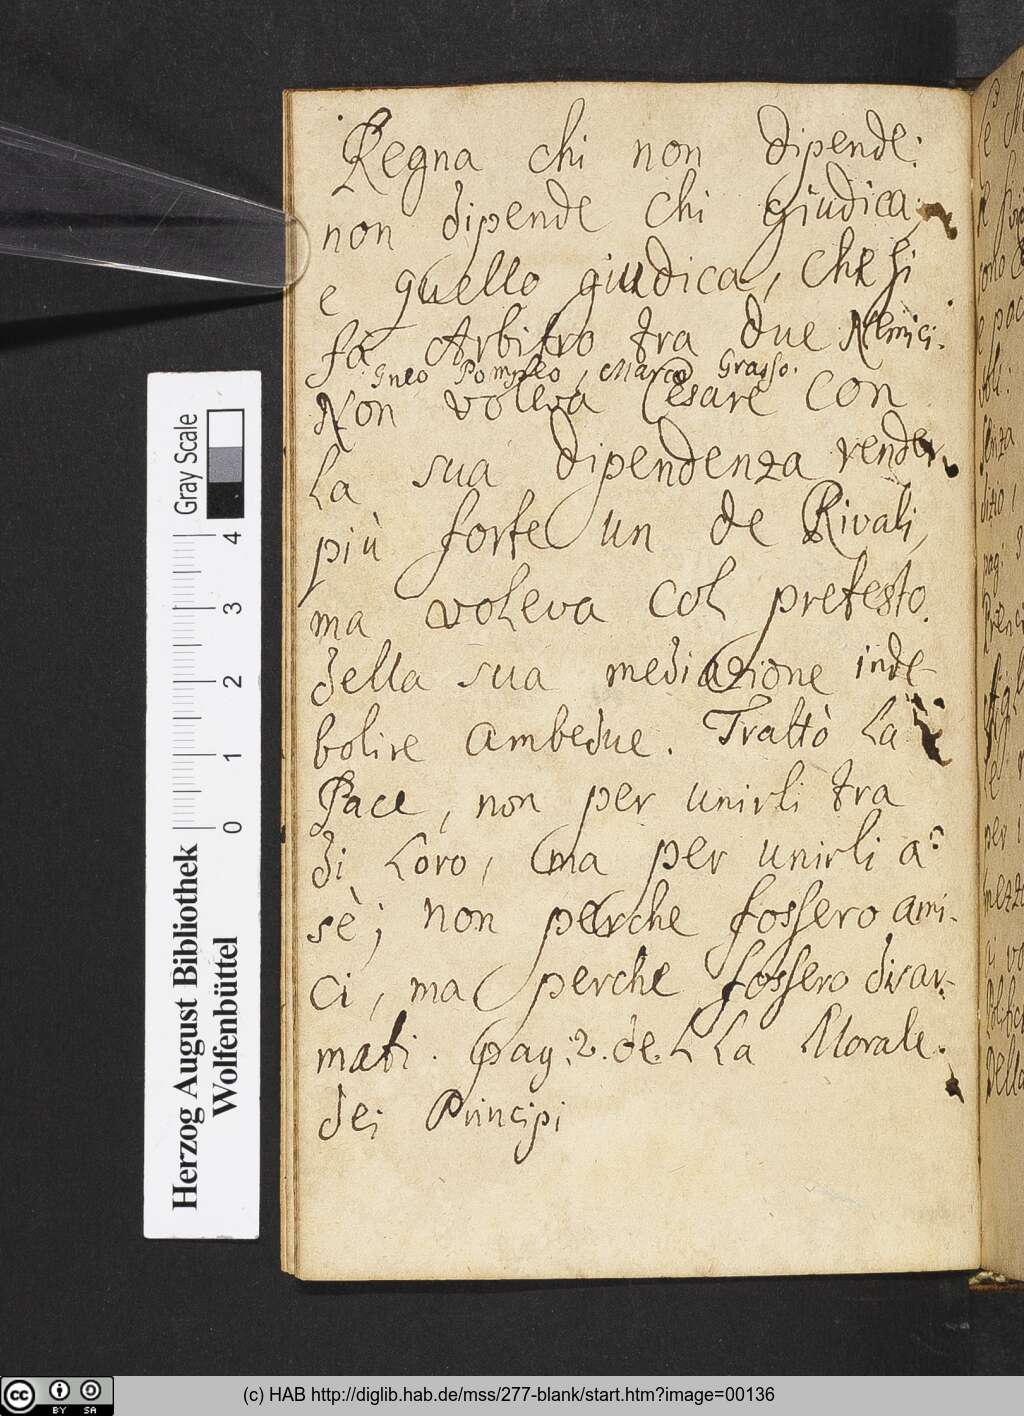 Regna chi non dipende:
non dipende chi giudica,
e quello giudica, che si
fa Arbitro tra due Nemici.
Gneo Pompeo, Marco Grasso.
Non voleva Cesare con
la sua dipendenza render
più forte un de Rivali,
ma voleva col pretesto
della sua mediazione inde-
bolire ambedue. Trattò la
Pace, non per unirli tra
di loro, ma per unirli a
sè; non perche fossero ami-
ci, ma perche fossero disar-
mati. pag: 2. del La Morale
dei Principi
Gray Scale
4
3
2
1
0
Herzog August Bibliothek
Wolfenbüttel
cc BY SA
(c) HAB http://diglib.hab.de/mss/277-blank/start.htm?image=00136